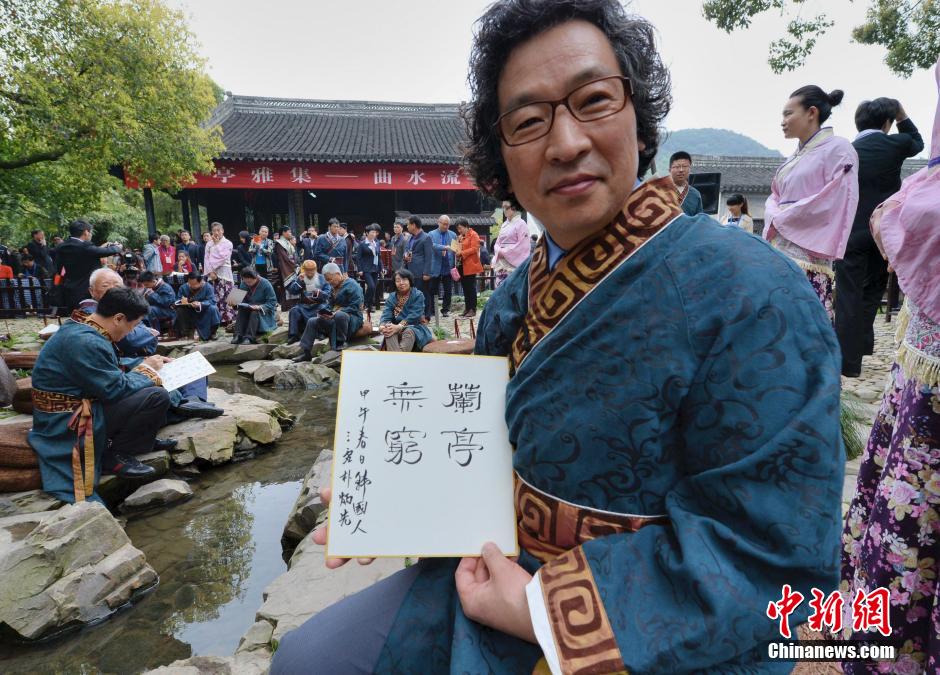 亭雅集—曲水流
蘭亭
無窮
甲午春日韓國人
朴炳先
中新网
Chinanews.com